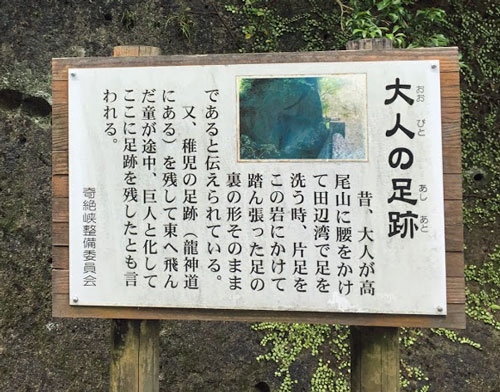 大人の足跡
おお びと あし あと
昔、大人が高
尾山に腰をかけ
て田辺湾で足を
洗う時、片足を
この岩にかけて
踏ん張った足の
裏の形そのまま
であると伝えられている。
又、稚児の足跡（龍神道
にある）を残して東へ飛ん
だ童が途中、巨人と化して
ここに足跡を残したとも言
われる。
奇絶峡整備委員会